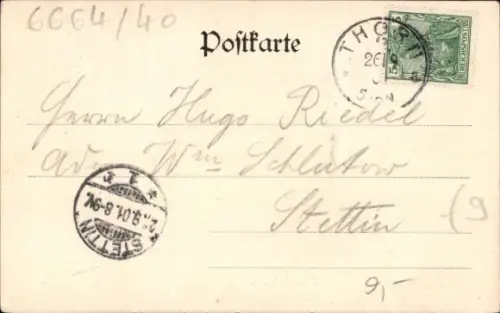 6664/40
Postkarte
THORN
Herrn Hugo Riedel
Adr. Wm Schlutow
Stettin
(9
STETTIN
9.01.8-9V.
1
9,-